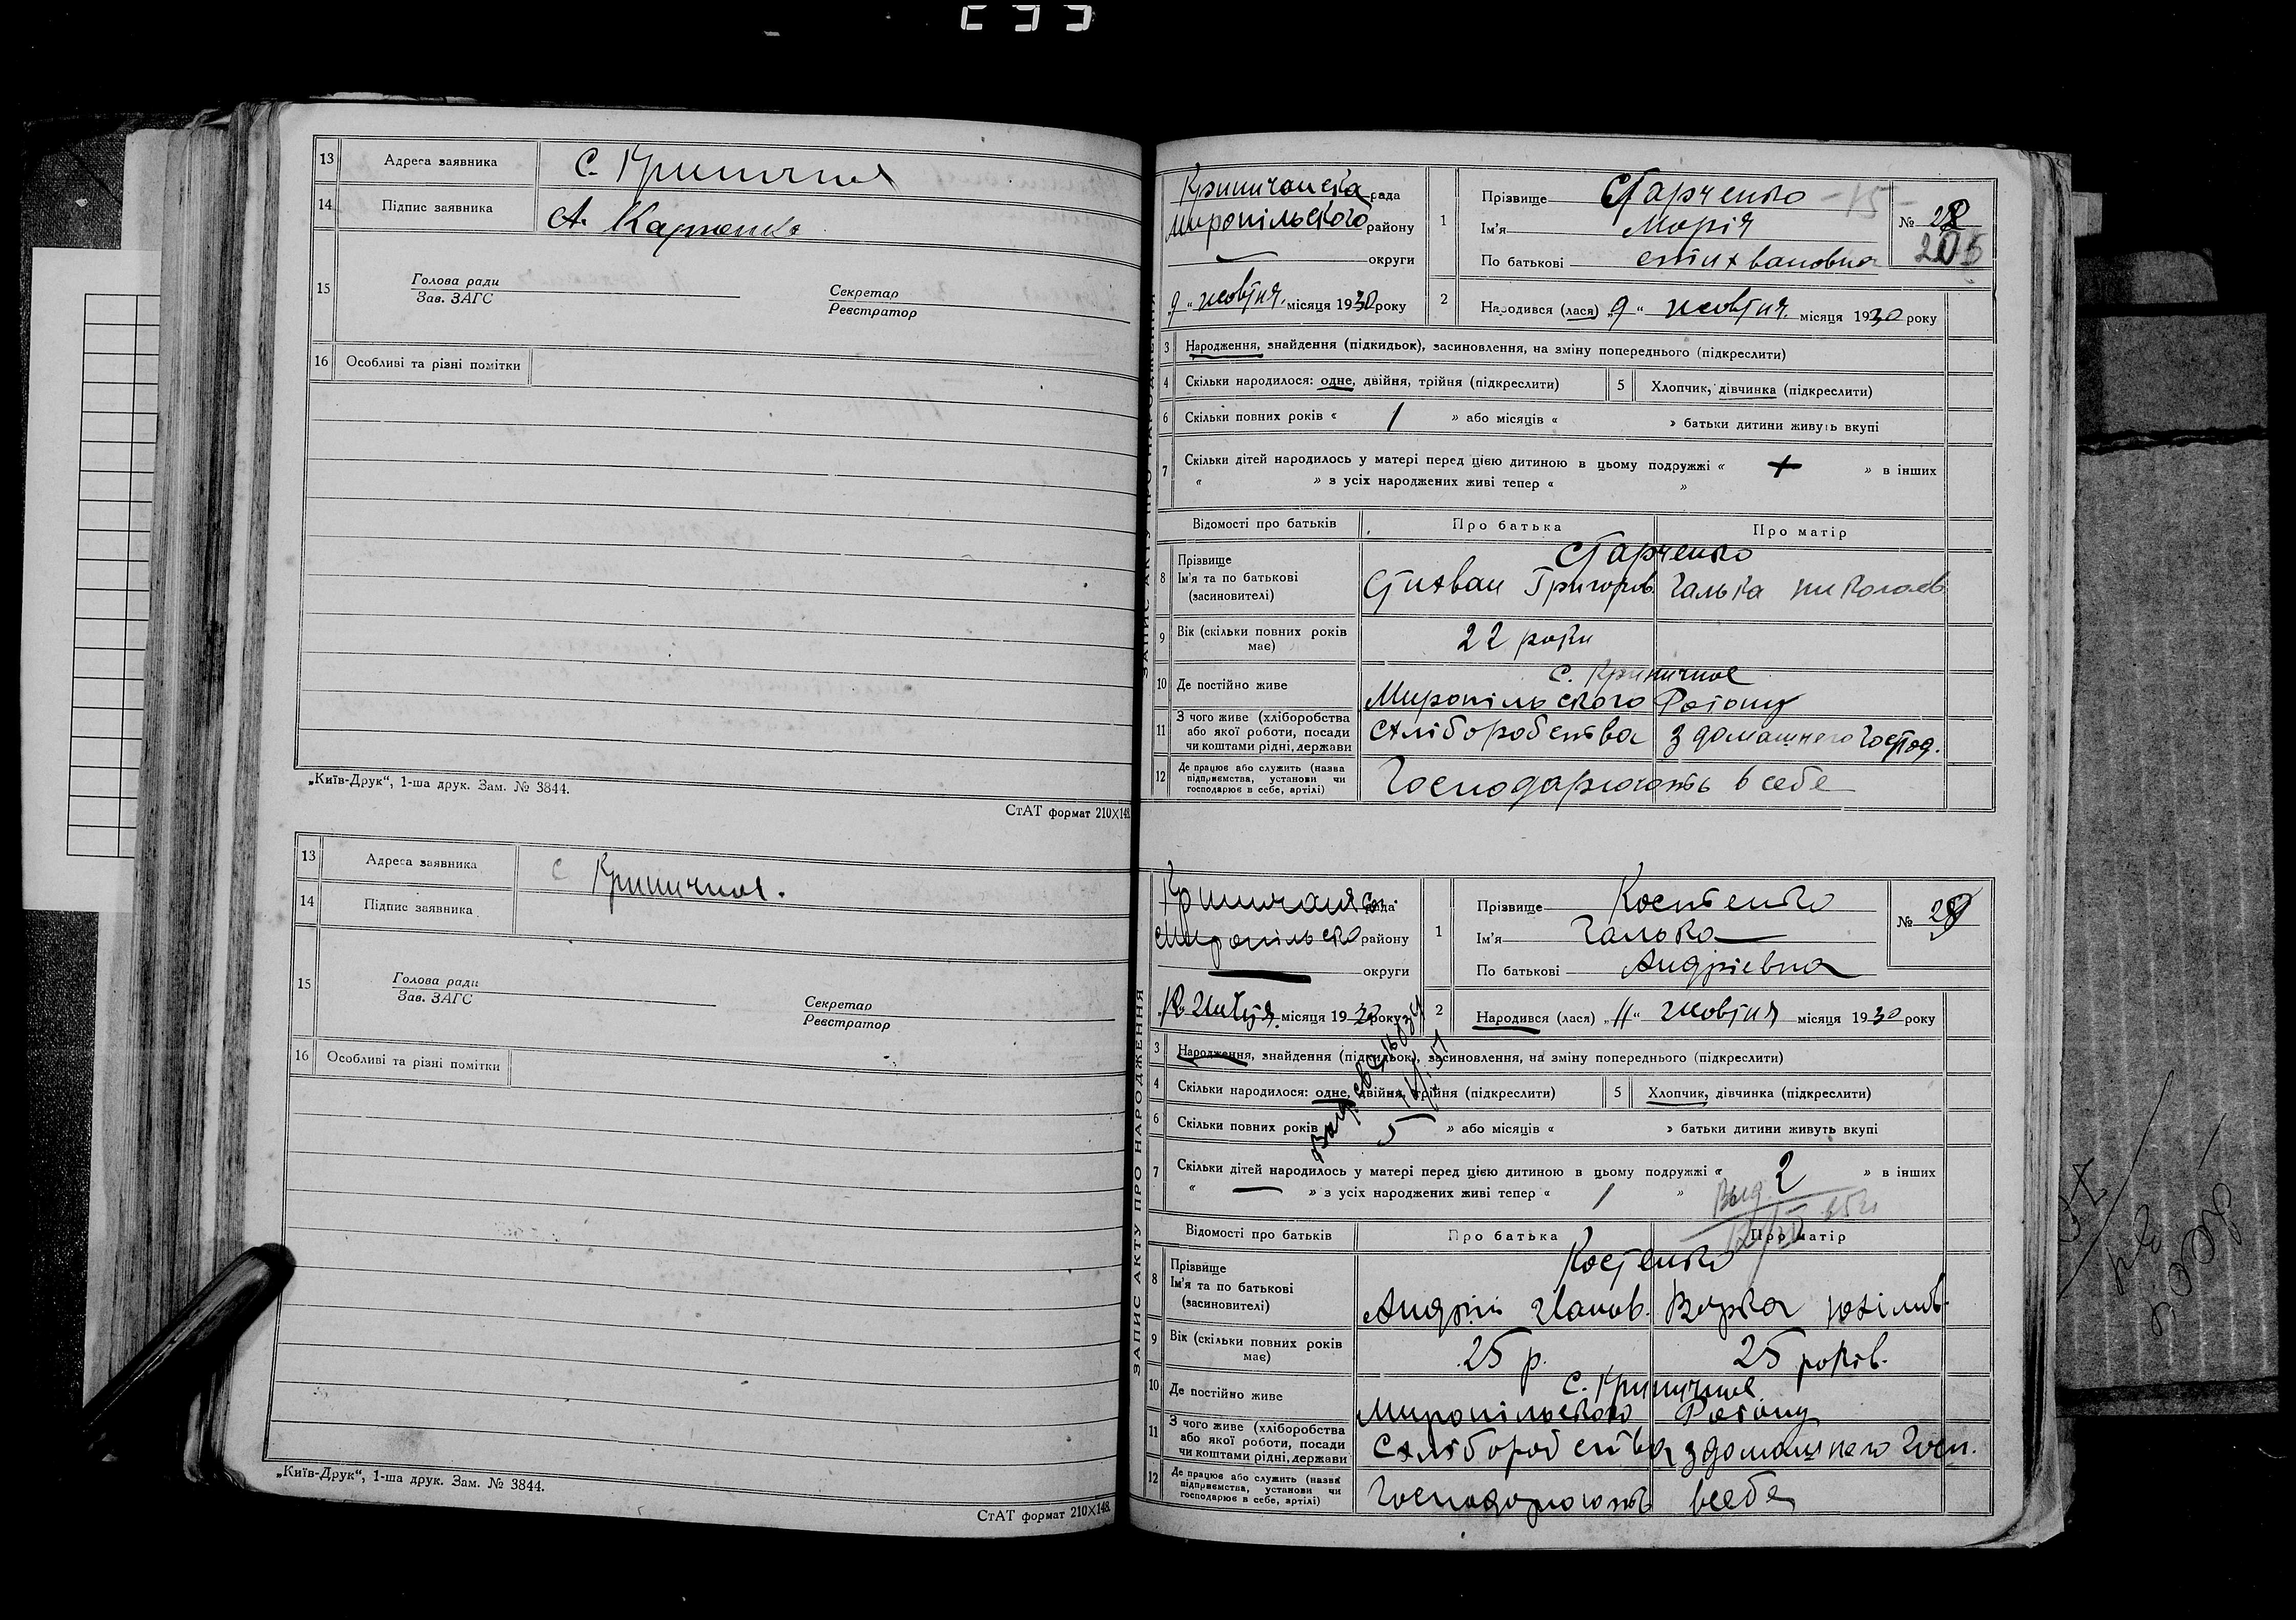 13 Адреса заявника С. Криничная
14 Підпис заявника А. Карпенко
15 Голова ради
Зав. ЗАГС
Секретар
Реєстратор
16 Особливі та різні помітки
„Київ-Друк“, 1-ша друк. Зам. № 3844.
СтАТ формат 210×148.
13 Адреса заявника С Криничная.
14 Підпис заявника
15 Голова ради
Зав. ЗАГС
Секретар
Реєстратор
16 Особливі та різні помітки
„Київ-Друк“, 1-ша друк. Зам. № 3844.
СтАТ формат 210×148.
ЗАПИС АКТУ ПРО НАРОДЖЕННЯ
Криничанська рада
Миропільского району
округи
„9“ жовтня місяця 1930 року
1 Прізвище Старченко -15-
Ім'я Марія
По батькові Стихвановна
№ 28
205
2 Народився (лася) „9“ жовтня місяця 1930 року
3 Народження, знайдення (підкидьок), засиновлення, на зміну попереднього (підкреслити)
4 Скільки народилося: одне, двійня, трійня (підкреслити) 5 Хлопчик, дівчинка (підкреслити)
6 Скільки повних років « 1 » або місяців « » батьки дитини живуть вкупі
7 Скільки дітей народилось у матері перед цією дитиною в цьому подружжі « + » в інших
« » з усіх народжених живі тепер « »
Відомості про батьків Про батька Про матір
8 Прізвище
Ім'я та по батькові
(засиновителі)
Старченко
Стихван Григоров. Галька Николаєв
9 Вік (скільки повних років має) 22 роки
10 Де постійно живе С. Криничное
Миропільского Району
11 З чого живе (хліборобства або якої роботи, посади чи коштами рідні, держави
Схліборобства з домашнего господ.
12 Де працює або служить (назва підприємства, установи чи господарює в себе, артілі)
Господарюють в себе
ЗАПИС АКТУ ПРО НАРОДЖЕННЯ
рада
Миропільско району
округи
місяця 1930 року
1 Прізвище Костенко
Ім'я Галька
По батькові Андрієвна
№ 29
2 Народився (лася) „11“ жовтня місяця 1930 року
3 Народження, знайдення (підкидьок), засиновлення, на зміну попереднього (підкреслити)
4 Скільки народилося: одне, двійня, трійня (підкреслити) 5 Хлопчик, дівчинка (підкреслити)
6 Скільки повних років 5 » або місяців « » батьки дитини живуть вкупі
7 Скільки дітей народилось у матері перед цією дитиною в цьому подружжі « 2 » в інших
« — » з усіх народжених живі тепер « 1 »
Відомості про батьків Про батька Про матір
8 Прізвище
Ім'я та по батькові
(засиновителі)
Костенко
Андрій Иванов. Варка
9 Вік (скільки повних років має) 25 р. 25 років.
10 Де постійно живе С. Криничное
Миропільского Району
11 З чого живе (хліборобства або якої роботи, посади чи коштами рідні, держави
Схліборобства з домашнего Госп.
12 Де працює або служить (назва підприємства, установи чи господарює в себе, артілі)
Господарюють всебе